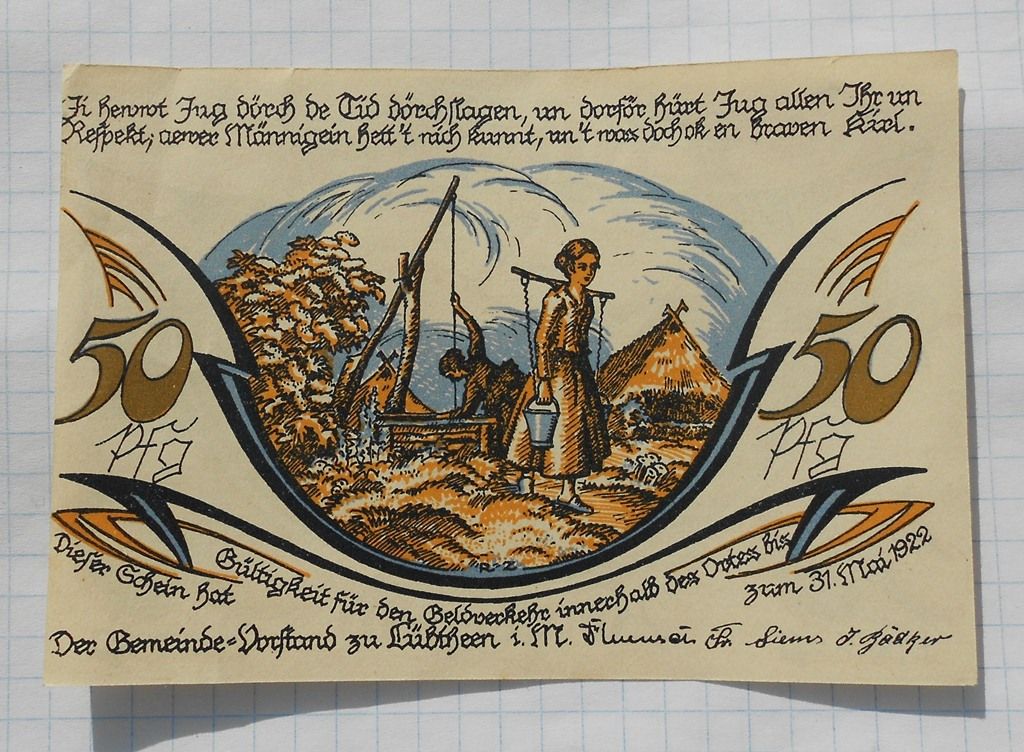 Ji hewwt Jug dörch de Tid dörchslagen, un dorför hürt Jug allen Ihr un
Respekt; aewer Männigein hett't nich kunnt, un't was doch ok en braven Kirl.
50
Pfg
50
Pfg
R-Z
Dieser Schein hat Gültigkeit für den Geldverkehr innerhalb des Ortes bis zum 31. Mai 1922
Der Gemeinde-Vorstand zu Lübtheen i. M. Fr. Siems J.